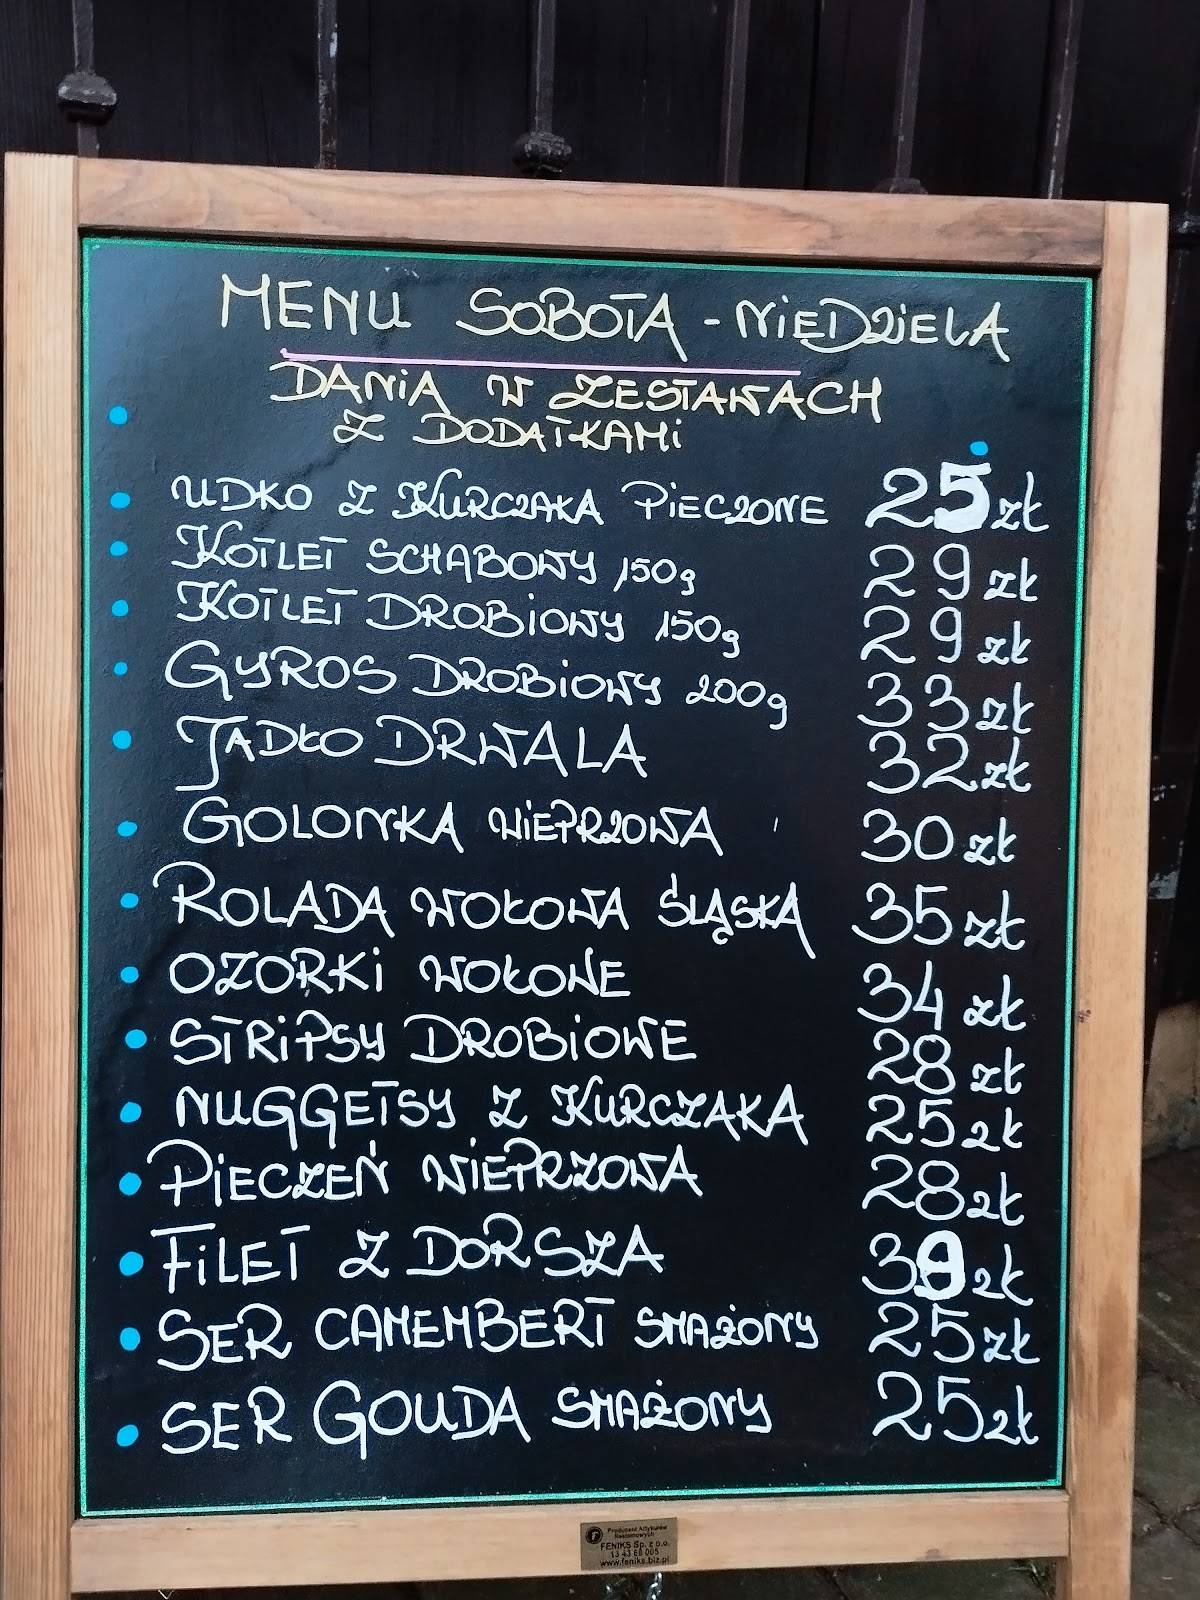 MENU SOBOTA - NIEDZIELA
DANIA W ZESTAWACH
Z DODATKAMI
UDKO Z KURCZAKA PIECZONE 25 zł
KOTLET SCHABOWY 150g 29 zł
KOTLET DROBIOWY 150g 29 zł
GYROS DROBIOWY 200g 33 zł
JADŁO DRWALA 32 zł
GOLONKA WIEPRZOWA 30 zł
ROLADA WOŁOWA ŚLĄSKA 35 zł
OZORKI WOŁOWE 34 zł
STRIPSY DROBIOWE 28 zł
NUGGETSY Z KURCZAKA 25 zł
PIECZEŃ WIEPRZOWA 28 zł
FILET Z DORSZA zł
SER CAMEMBERT SMAŻONY 25 zł
SER GOUDA SMAŻONY 25 zł
Producent Artykułów
Reklamowych
FENIKS Sp. z o.o.
13 43 68 005
www.feniks.biz.pl